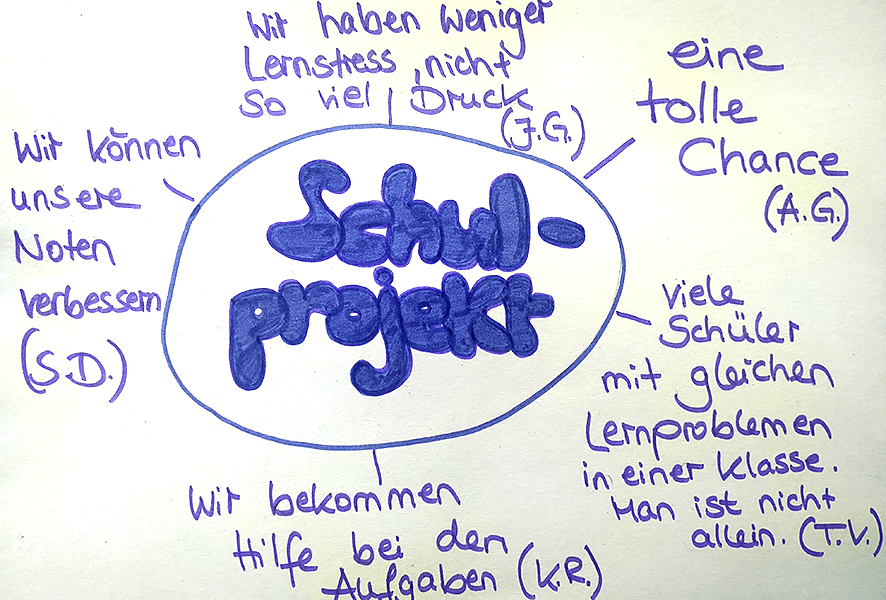 Wir haben weniger
Lernstress, nicht
so viel Druck
(J.G.)
eine
tolle
Chance
(A.G.)
Wir können
unsere
Noten
verbessern
(S.D.)
Schul-
projekt
viele
Schüler
mit gleichen
Lernproblemen
in einer Klasse.
Man ist nicht
allein. (T.V.)
Wir bekommen
Hilfe bei den
Aufgaben (K.R.)